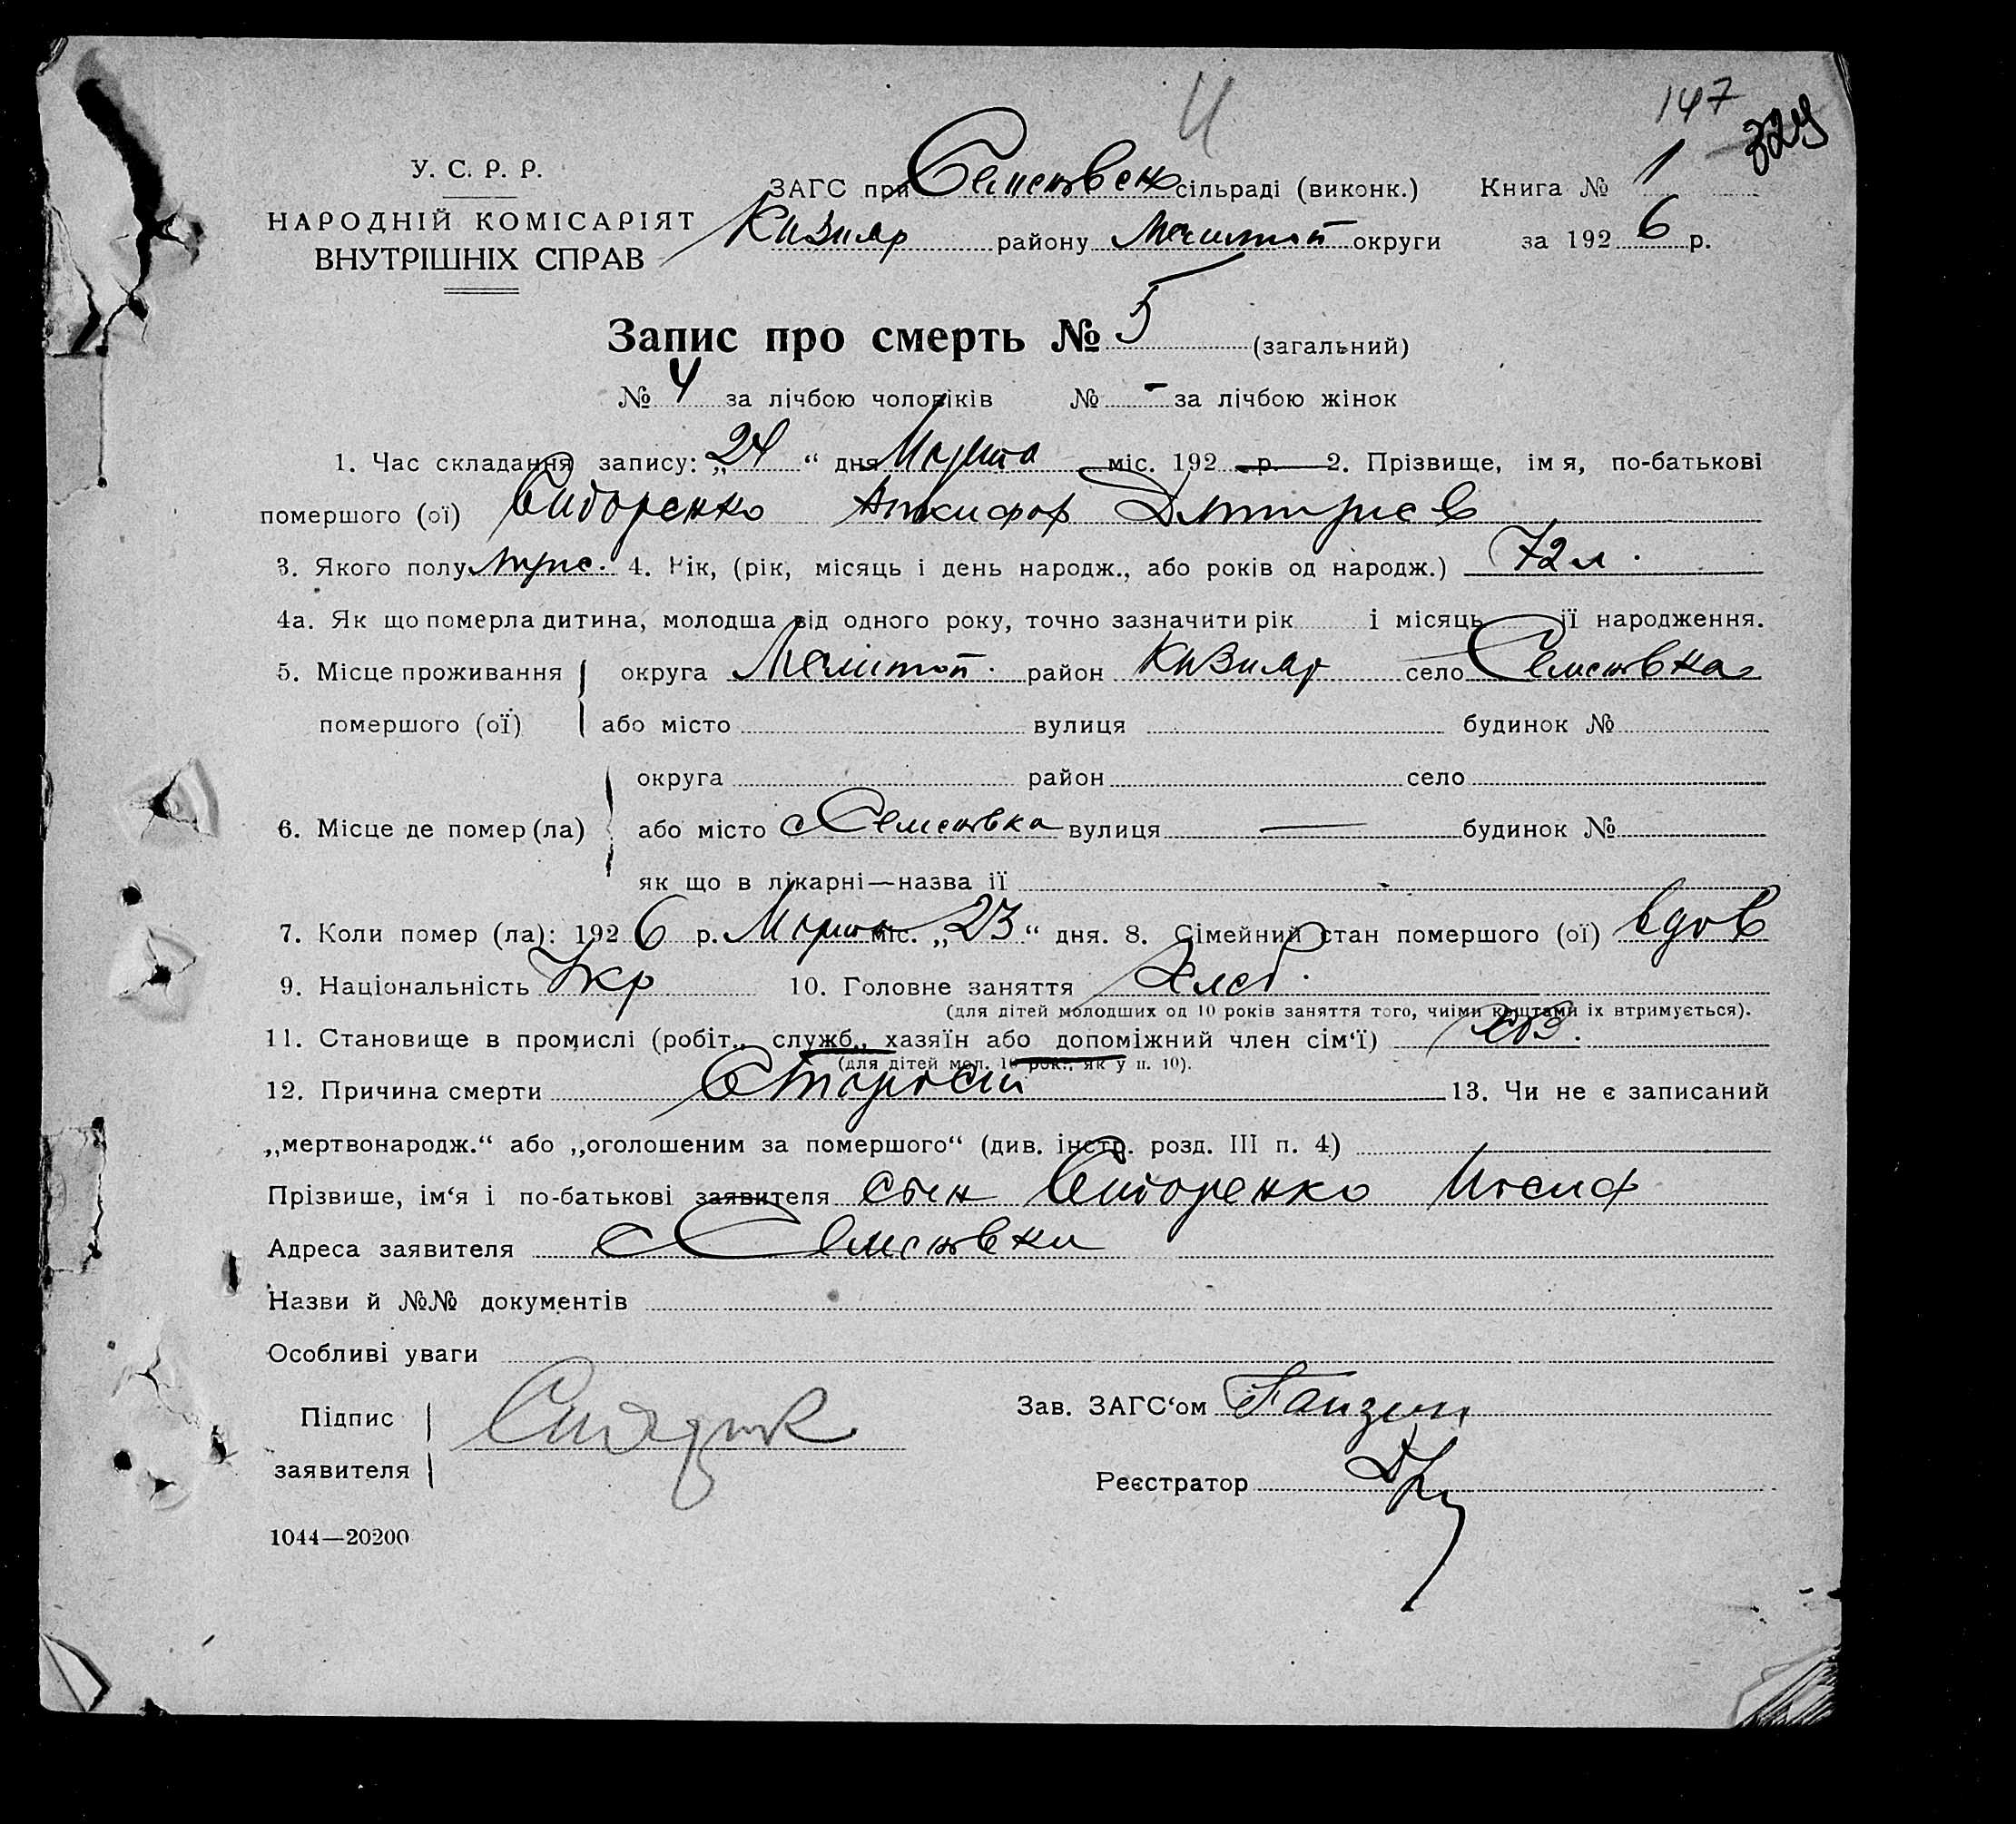 И
147
329
У. С. Р. Р.
НАРОДНІЙ КОМІСАРІЯТ
ВНУТРІШНІХ СПРАВ
ЗАГС при Семеновск сільраді (виконк.) Книга № 1
Кизияр району Мелитоп округи за 1926 р.
Запис про смерть № 5 (загальний)
№ 4 за лічбою чоловіків № - за лічбою жінок
1. Час складання запису: „24“ дня Марта міс. 192 р. 2. Прізвище, імя, по-батькові
помершого (ої) Сидоренко Никифор Дмитриев
3. Якого полу муж. 4. Рік, (рік, місяць і день народж., або років од народж.) 72 л.
4а. Як що померла дитина, молодша від одного року, точно зазначити рік і місяць її народження.
5. Місце проживання округа Мелитоп. район Кизияр село Семеновка
помершого (ої) або місто вулиця будинок №
округа район село
6. Місце де помер (ла) або місто с Семеновка вулиця — будинок №
як що в лікарні—назва її
7. Коли помер (ла): 1926 р. Марта міс. „23“ дня. 8. Сімейний стан помершого (ої) вдов
9. Національність Укр 10. Головне заняття Хлеб.
(для дітей молодших од 10 років заняття того, чиїми коштами їх втримується).
11. Становище в промислі (робіт., служб., хазяїн або допоміжний член сім‘ї) хоз.
(для дітей мол. 10 рок., як у п. 10).
12. Причина смерти Старость 13. Чи не є записаний
„мертвонародж.“ або „оголошеним за помершого“ (див. інстр. розд. III п. 4)
Прізвише, ім‘я і по-батькові заявителя сын Сидоренко Иосиф
Адреса заявителя с Семеновки
Назви й №№ документів
Особливі уваги
Підпис
заявителя
Зав. ЗАГС‘ом
Реєстратор
1044—20200